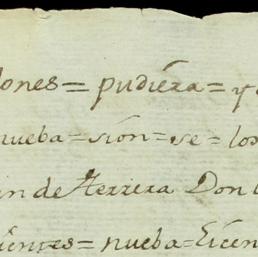 lones = pudiéra = y
nueba = sion = se = los
in de Herrera Don
üentes = nueba = Licen